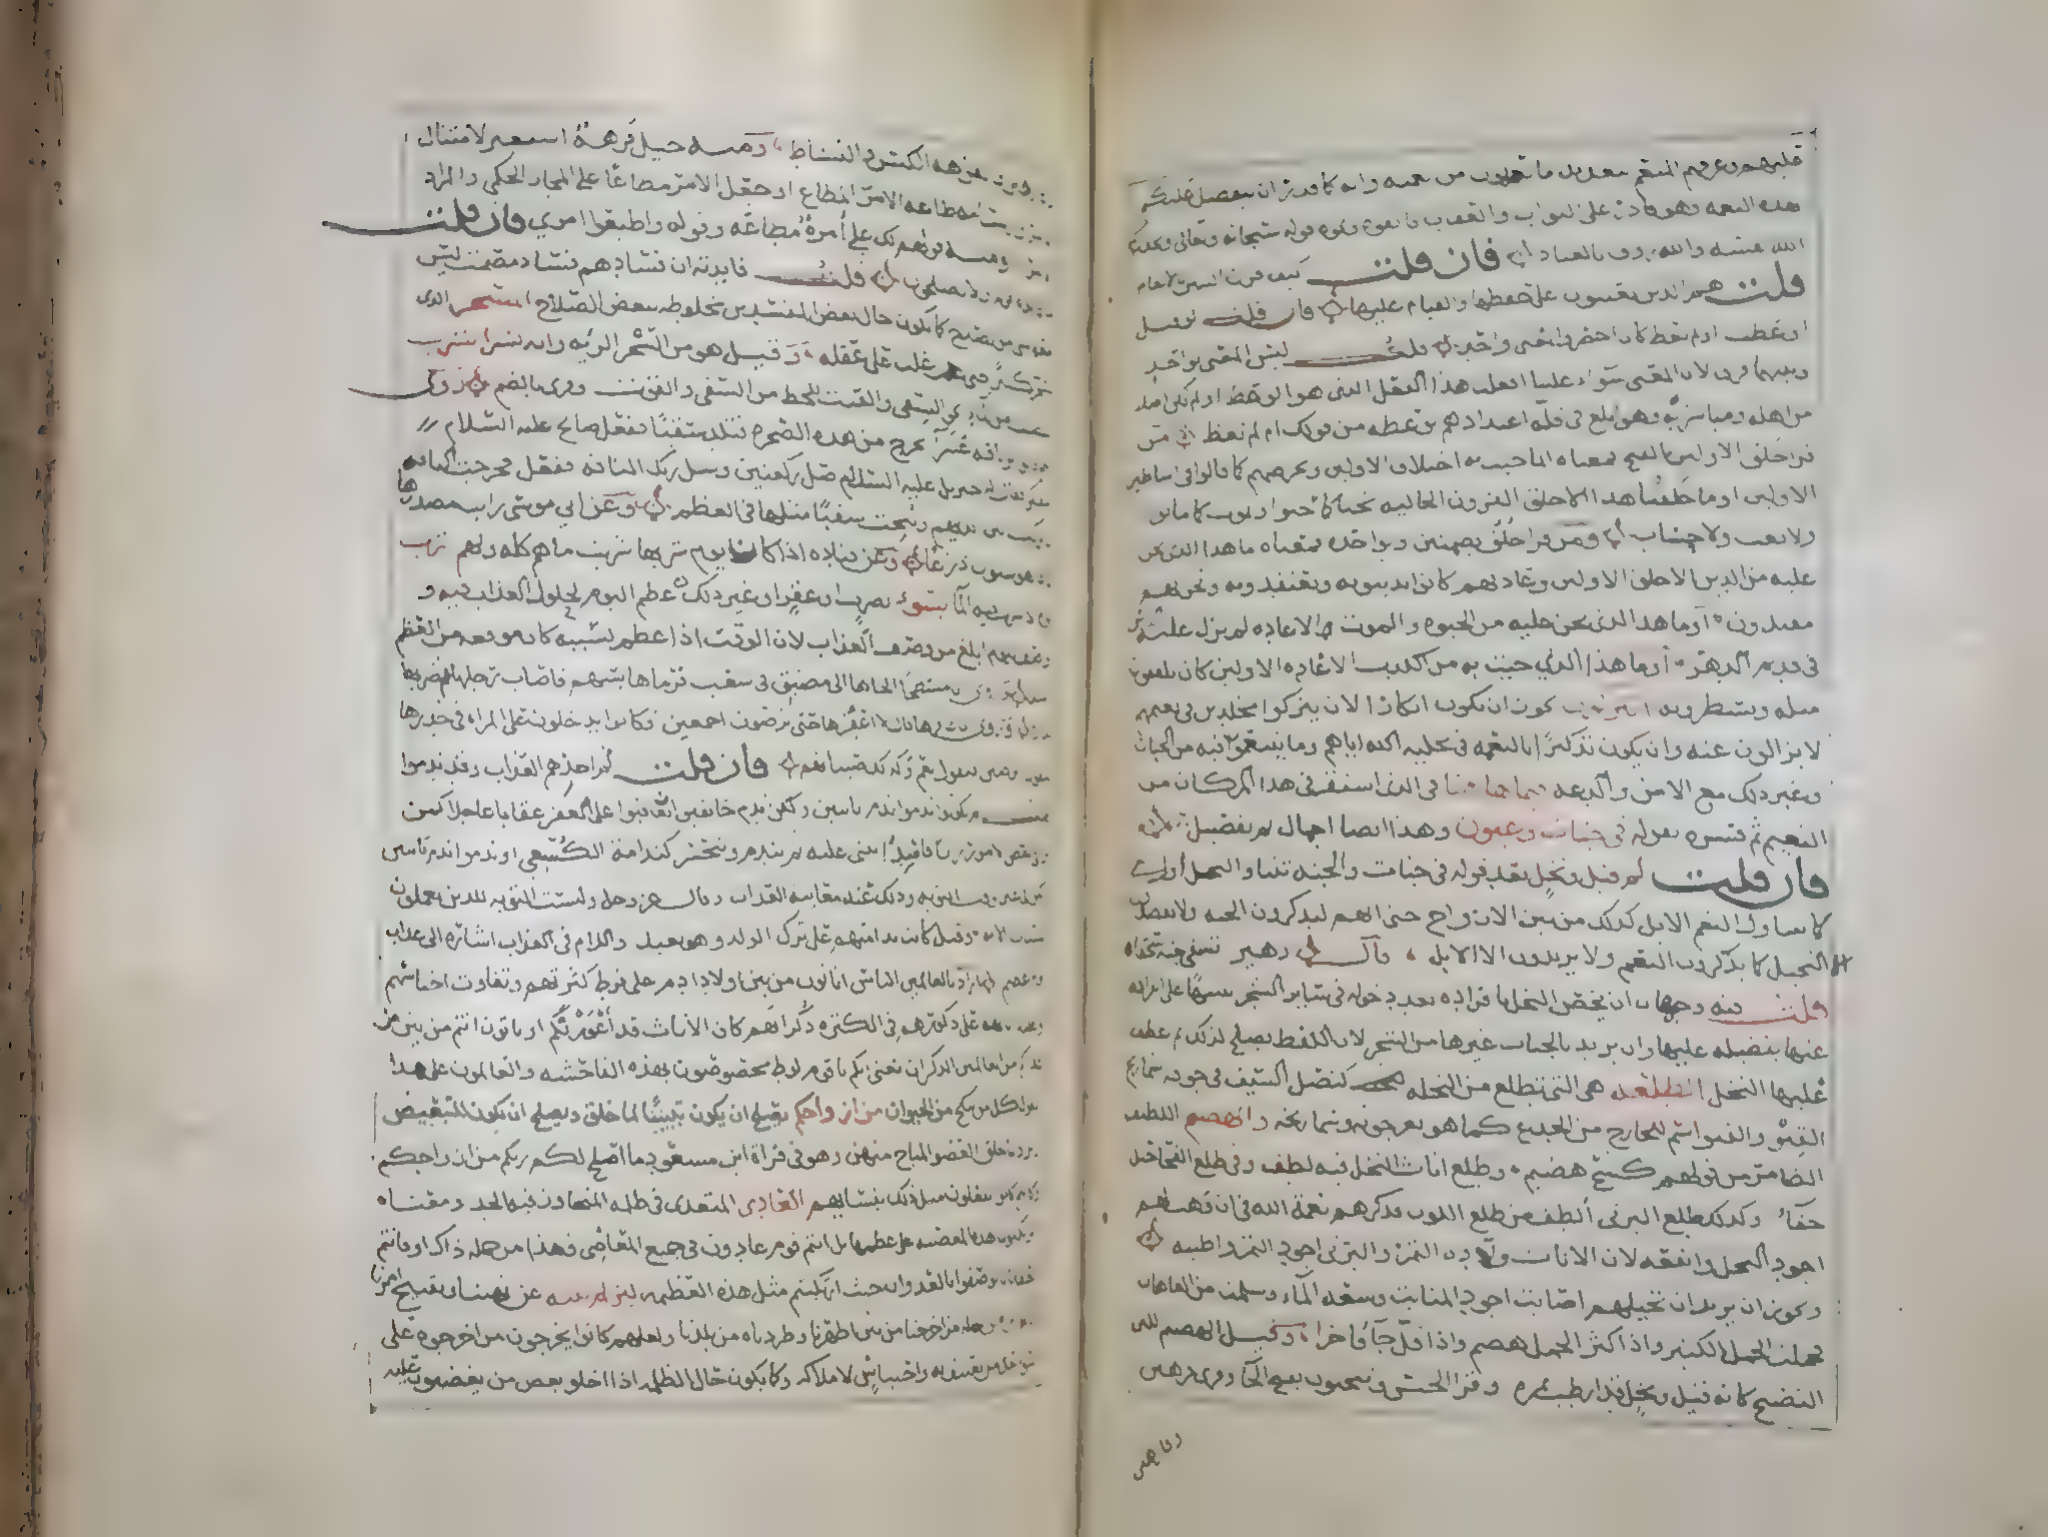 قلبهم وعرفهم المنعم بتعديد ما يعلمون من نعمته وانه كما قدر ان يتفضل عليكم
هذه النعمة فهو قادر على الثواب والعقاب فاتقوه ونحوه قوله سبحانه وتعالى ويحذركم
الله نفسه والله رءوف بالعباد فان قلت كيف قرن البنين بالانعام
قلت هم الذين يعينونهم على حفظها والقيام عليها فان قلت لو قيل
او عظت او لم تعظ كان اخصر والمعنى واحد قلت ليس المعنى بواحد
وبينهما فرق لان المعنى سواء علينا افعلت هذا الفعل الذي هو الوعظ او لم تكن اصلا
من اهله ومباشريه فهو ابلغ في قلة اعتدادهم بوعظه من قولك ام لم تعظ من
قرا خلق الاولين بالفتح فمعناه ان ما جئت به اختلاق الاولين وتخرصهم كما قالوا اساطير
الاولين او ما خلقنا هذا الا خلق القرون الخالية نحيا كما حيوا ونموت كما ماتوا
ولا بعث ولا حساب ومن قرا خلق بضمتين وبواحدة فمعناه ما هذا الذي نحن
عليه من الدين الا خلق الاولين وعادتهم كانوا يدينونه ويعتقدونه ونحن بهم
مقتدون او ما هذا الذي نحن عليه من الحيوة والموت الا عادة لم يزل عليها
في قديم الدهر او ما هذا الذي جئت به من الكذب الا عادة الاولين كانوا يلفقون
مثله ويسطرونه اتتركون يجوز ان يكون انكارا لان يتركوا مخلدين في نعيمهم
لا يزالون عنه وان يكون تذكيرا بالنعمة في تخلية الله اياهم وما يتنعمون فيه من الجنات
وغير ذلك مع الامن والدعة فيما هاهنا في الذي استقر في هذا المكان من
النعيم ثم فسره بقوله في جنات وعيون وهذا ايضا اجمال ثم تفصيل
فان قلت لم قيل ونخل بعد قوله في جنات والجنة تتناول النخل اول
كما يتناول النعم الابل كذلك من بين الازواج حتى انهم ليذكرون الجنة ولا يقصدون الا
النخيل كما يذكرون النعم ولا يريدون الا الابل قال زهير تسقي جنة سحقا
قلت فيه وجهان ان يخص النخل بافراده بعد دخوله في سائر الشجر تنبيها على انفراده
عنها بفضله عليها وان يريد بالجنات غيرها من الشجر لان اللفظ يصلح لذلك ثم عطف
عليها النخل الطلعة هي التي تطلع من النخلة كنصل السيف في جوفه شماريخ
القنو والقنو اسم للخارج من الجذع كما هو بعرجونه وشماريخه والهضيم اللطيف
الضامر من قولهم كشح هضيم وطلع اناث النخل فيه لطف وفي طلع الفحاحيل
جفاء وكذلك طلع البرني الطف من طلع اللون فذكرهم نعمة الله في ان وهب لهم
اجود النخل وانفعه لان الاناث ولادة التمر والبرني اجود التمر واطيبه
ويجوز ان يريد ان نخيلهم اصابت اجود المنابت وسعة الماء وسلمت من العاهات
فحملت الحمل الكثير واذا كثر الحمل هضم واذا قل جاء فاخرا وقيل الهضيم اللين
النضيج كانه قيل ونخل قد ارطب ثمره وقرا الحسن وتنحتون بفتح الحاء وقرئ فرهين
وفارهين
والفراهة الكيس والنشاط ومنه خيل فرهة استعير لامتثال
الامر طاعة الامر المطاع او جعل الامر مطاعا على المجاز الحكمي والمراد
ومنه قولهم لك علي امرة مطاعة وقوله واطيعوا امري فان قلت
ولا يصلحون قلت فايدته ان فسادهم فساد مصمت ليس
معه شيء من الصلاح كما تكون حال بعض المفسدين مخلوطة ببعض الصلاح المسحر الذي
سحر كثيرا حتى غلب على عقله وقيل هو من السحر الرئة وانه بشر الشرب
النصيب من الماء نحو السقي والقيت للحظ من السقي والقوت وقرئ بالضم روي
انهم قالوا نريد ناقة عشراء تخرج من هذه الصخرة فتلد سقبا فقعد صالح عليه السلام
يتفكر فقال له جبريل عليه السلام صل ركعتين وسل ربك الناقة ففعل فخرجت الناقة
وبركت بين ايديهم ونتجت سقبا مثلها في العظم وعن ابي موسى رايت مصدرها
فاذا هو ستون ذراعا وعن قتادة اذا كان يوم شربها شربت ماءهم كله ولهم شرب
يوم لا تشرب فيه الماء بسوء بضرب او عقر او غير ذلك عظم اليوم لحلول العذاب فيه و
وصف اليوم ابلغ من وصف العذاب لان الوقت اذا عظم بسببه كان موقعه من العظم
اشد وروي ان مسطعا الجاها الى مضيق في شعب فرماها بسهم فاصاب رجلها ثم ضربها
قدار وروي ان عاقرها قال لا اعقرها حتى ترضون اجمعين فكانوا يدخلون على المراة في خدرها
فيقولون اترضين فتقول نعم وكذلك صبيانهم فان قلت لم اخذهم العذاب وقد ندموا
قلت لم يكن ندمهم ندم تائبين ولكن ندم خائفين ان يعاقبوا على العقر عقابا عاجلا كمن
يرى في بعض الامور رايا فاسدا ويبني عليه ثم يندم ويتحسر كندامة الكسعي او ندموا ندم تائبين
ولكن في غير وقت التوبة وذلك عند معاينة العذاب وقال عز وجل وليست التوبة للذين يعملون
السيئات الاية وقيل كانت ندامتهم على ترك الولد وهو بعيد واللام في العذاب اشارة الى عذاب
يوم عظيم اراد بالعالمين الناس اتاتون من بين اولاد ادم على فرط كثرتهم وتفاوت اجناسهم
وغلبة اناثهم على ذكورهم في الكثرة ذكرانهم كان الاناث قد اعوزتكم او اتاتون انتم من بين من
عداكم من العالمين الذكران يعني انكم يا قوم لوط مختصون بهذه الفاحشة والعالمون على هذا
القول كل من ينكح من الحيوان من ازواجكم يصلح ان يكون تبيينا لما خلق ويصلح ان يكون للتبعيض
ويراد بما خلق العضو المباح منهن وهو في قراءة ابن مسعود ما اصلح لكم ربكم من ازواجكم
وكانهم كانوا يفعلون مثل ذلك بنسائهم العادي المتعدي في ظلمه المتجاوز فيه الحد ومعناه
اترتكبون هذه المعصية على عظمها بل انتم قوم عادون في جميع المعاصي فهذا من جملة ذاك او بل انتم
قوم احقاء بان توصفوا بالعدوان حيث ارتكبتم مثل هذه العظيمة لئن لم تنته عن نهينا وتقبيح امرنا
لتكونن من جملة من اخرجناه من بين اظهرنا وطردناه من بلدنا ولعلهم كانوا يخرجون من اخرجوه على
اسوء حال من تعنيف به واحتباس لاملاكه وكما يكون حال الظلمة اذا اجلوا بعض من يغضبون عليه